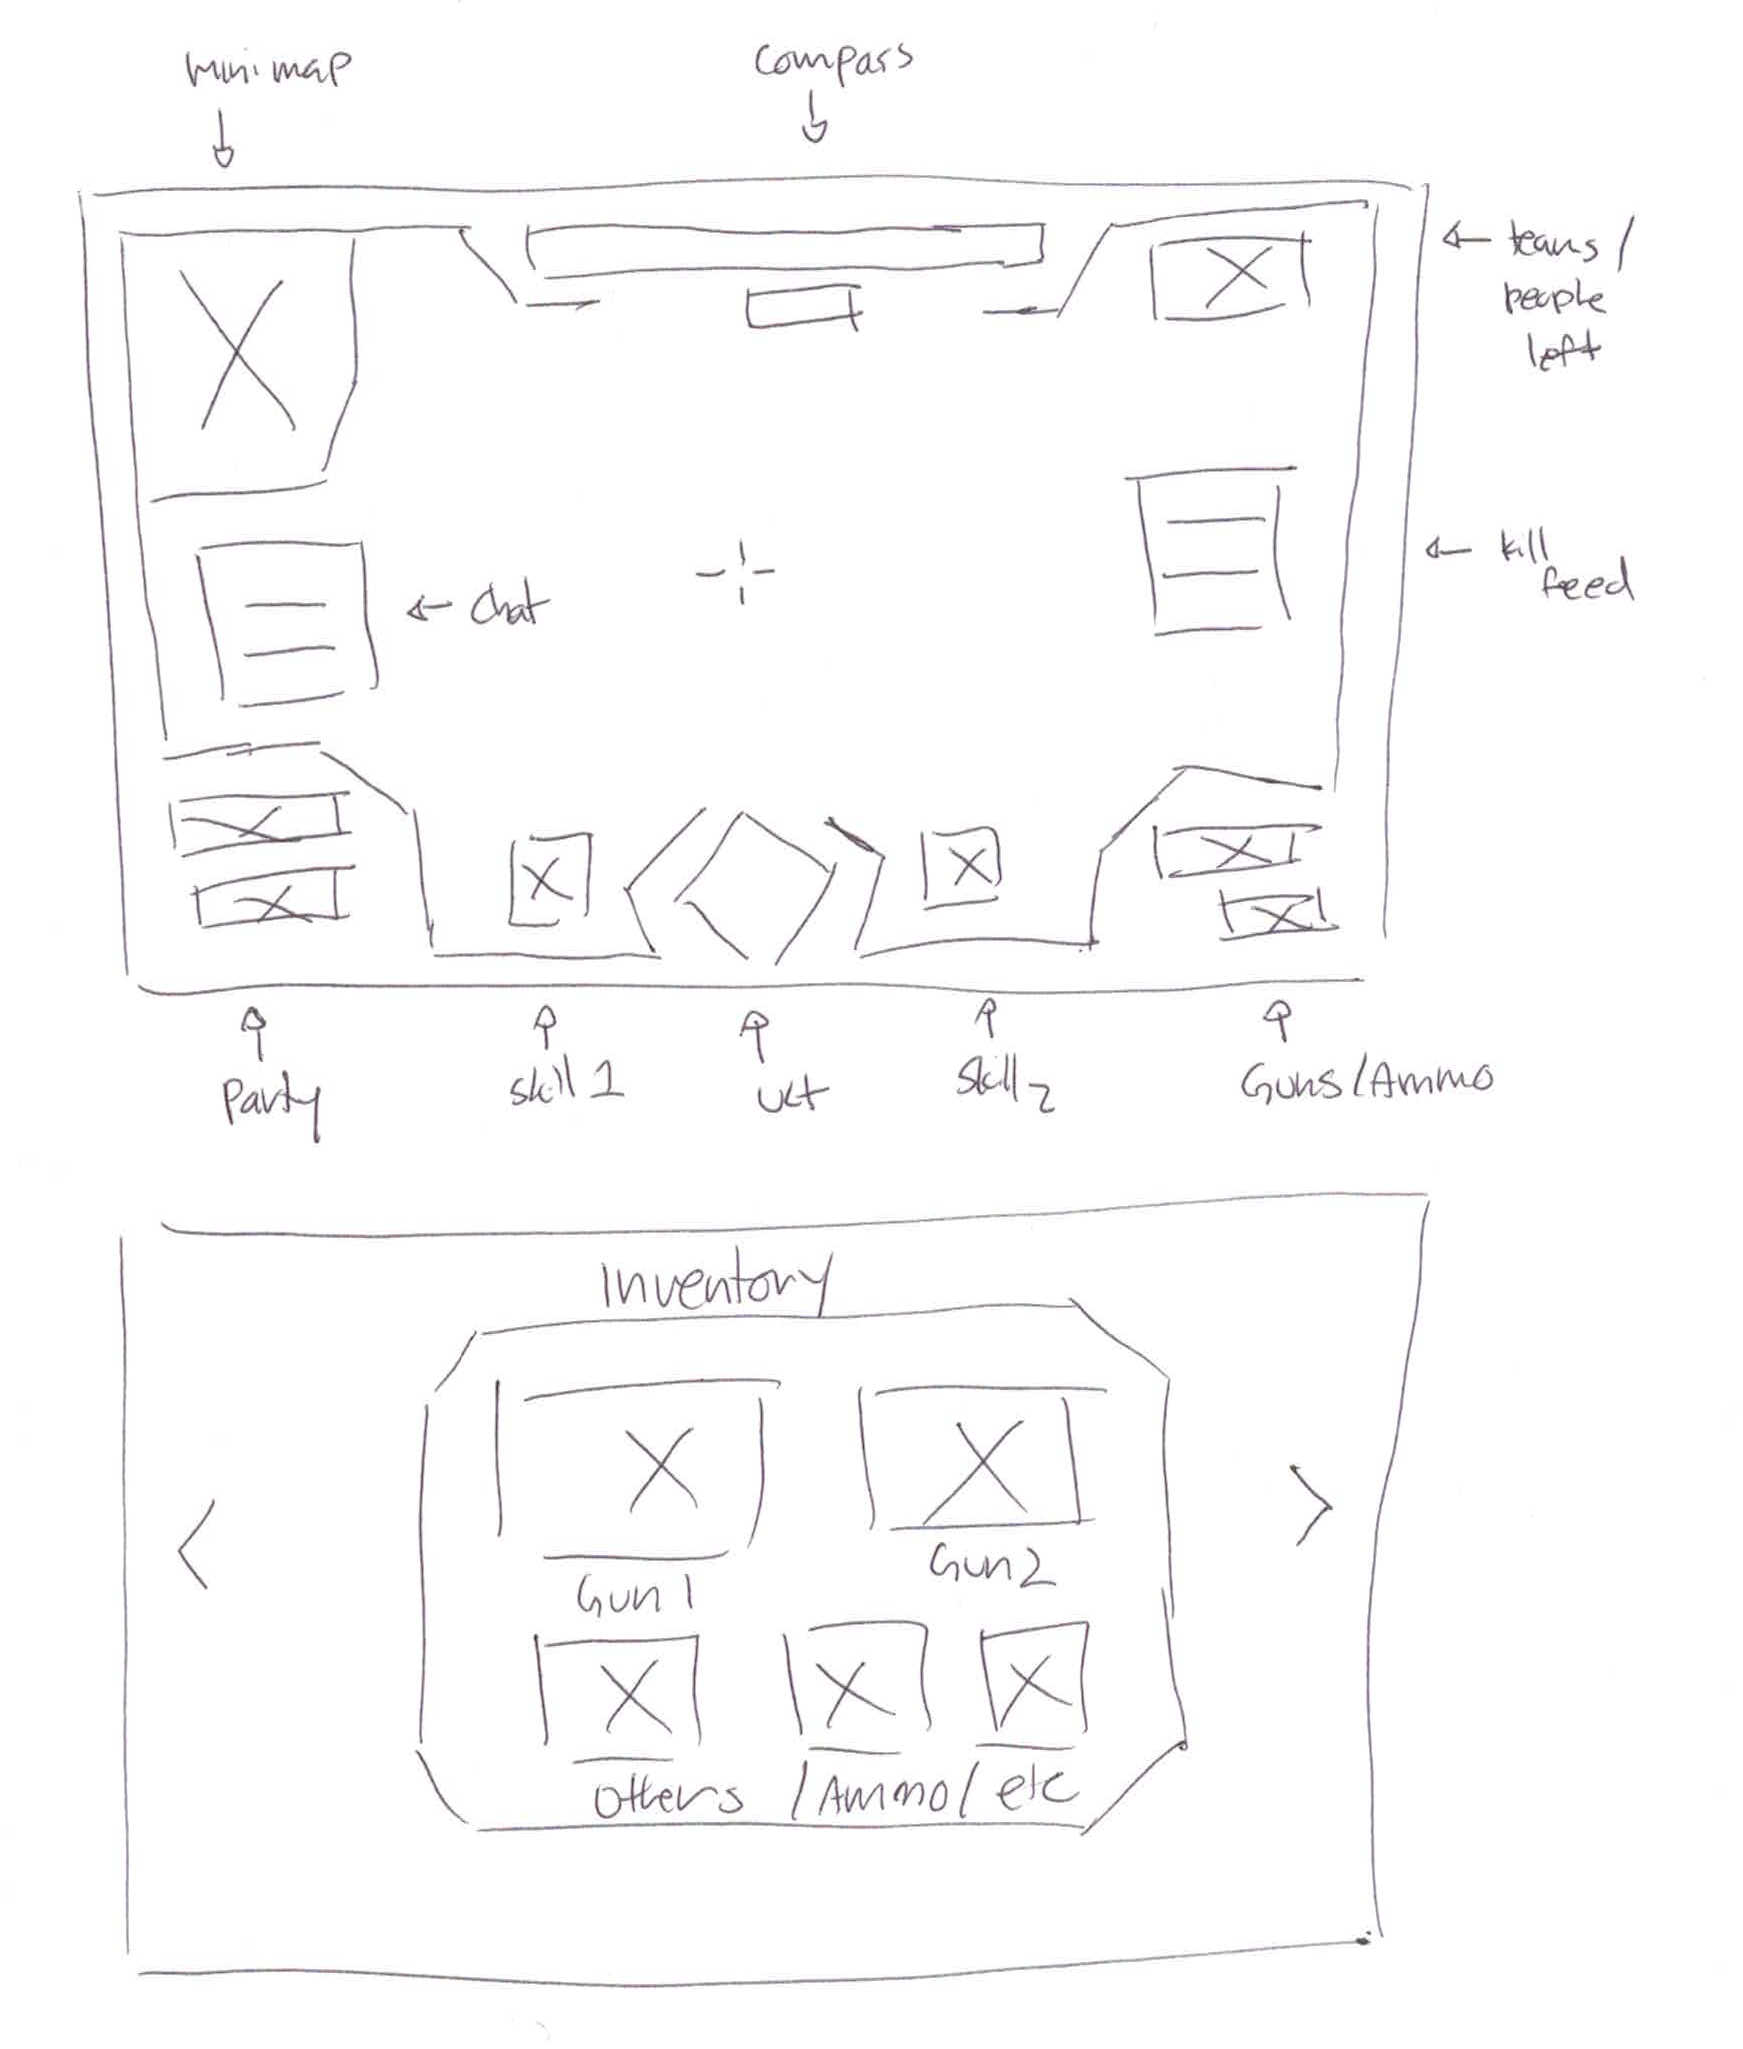 Minimap
Compass
teams /
people
left
kill
feed
Chat
Party
skill 1
ULT
skill 2
Guns / Ammo
Inventory
Gun 1
Gun 2
Others / Ammo / etc